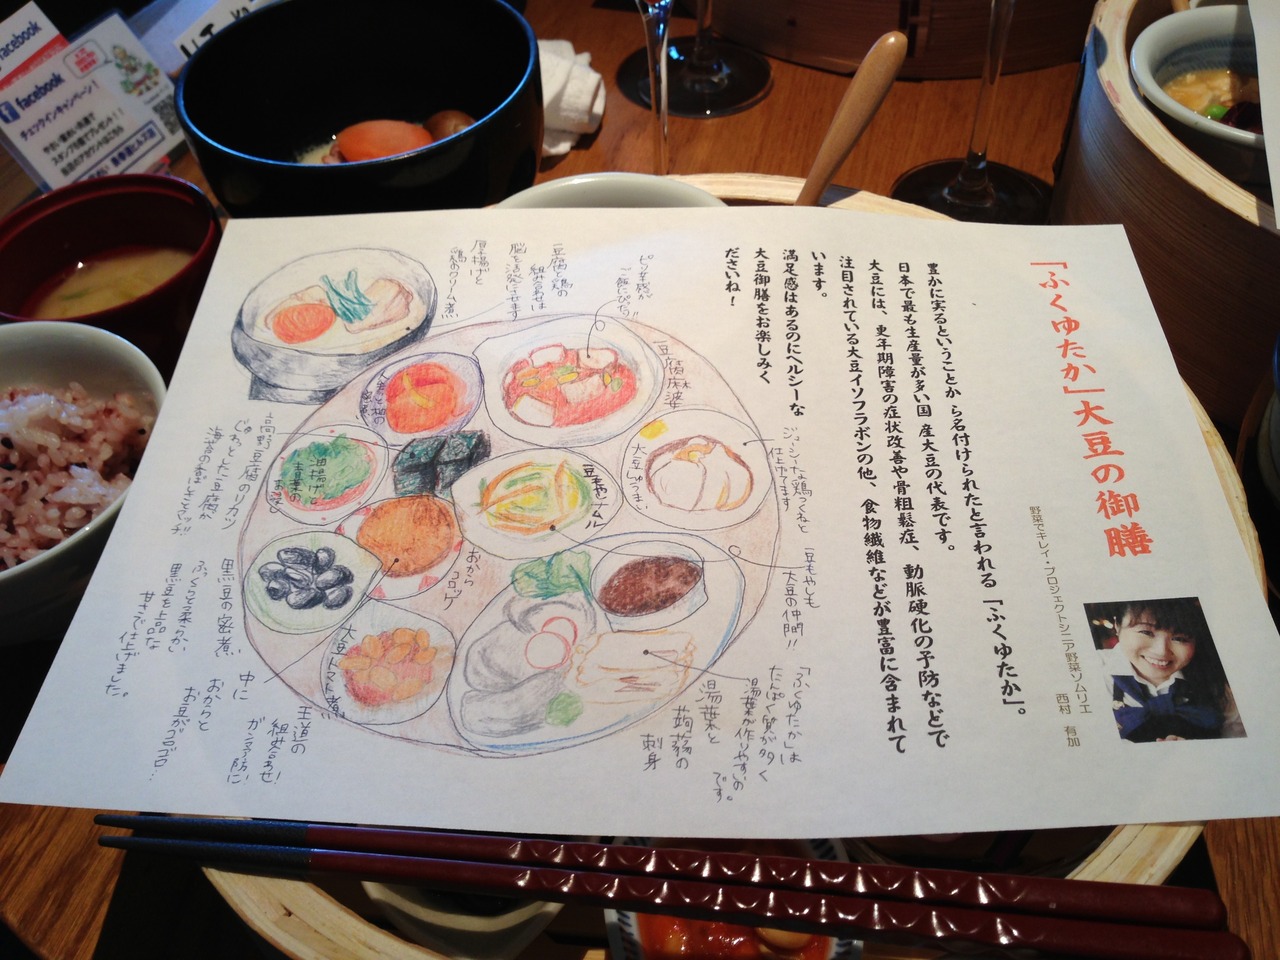 「ふくゆたか」大豆の御膳
野菜でキレイ・プロジェクトシニア野菜ソムリエ
西村 有加
豊かに実るということから名付けられたと言われる「ふくゆたか」。
日本で最も生産量が多い国産大豆の代表です。
大豆には、更年期障害の症状改善や骨粗鬆症、動脈硬化の予防などで
注目されている大豆イソフラボンの他、食物繊維などが豊富に含まれて
います。
満足感はあるのにヘルシーな
大豆御膳をお楽しみく
ださいね!
ピリ辛感が
ご飯にぴったり!!
豆腐麻婆
豆腐と鶏の
組み合わせは
脳を活発にさせます
厚揚げと
鶏のクリーム煮
ジューシーな鶏つくねと
仕上げてます
大豆しゅうまい
豆もやしナムル
豆もやしも
大豆の仲間!!
油揚げと
青菜の
高野豆腐のリカツ
じゅわっとした豆腐が
海苔の香りとマッチ!!
おから
コロッケ
黒豆の蜜煮
ふっくらと柔らかい
黒豆を上品な
甘さで仕上げました。
大豆トマト煮
王道の
組み合わせ!
ガン予防に
中に
おからと
お豆がゴロゴロ…
「ふくゆたか」は
たんぱく質が多く
湯葉が作りやすいの
です。
湯葉と
蒟蒻の
刺身
facebook
facebook
チェックインキャンペーン!